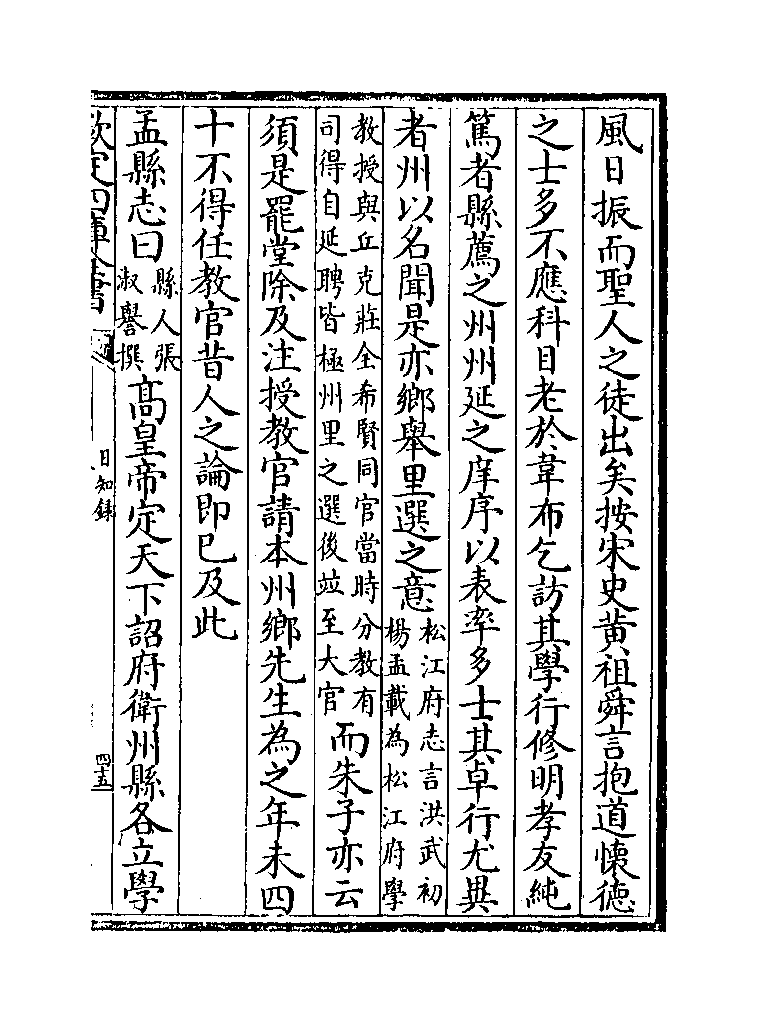 風日振而聖人之徒出矣按宋史黄祖舜言抱道懐德
之士多不應科目老於韋布乞訪其學行修明孝友純
篤者縣薦之州州延之庠序以表率多士其卓行尤異
者州以名聞是亦鄉舉里選之意
松江府志言洪武初
楊孟載為松江府學
教授與丘克莊全希賢同官當時分教有
司得自延聘皆極州里之選後並至大官
而朱子亦云
須是罷堂除及注授教官請本州鄉先生為之年未四
十不得任教官昔人之論即已及此
孟縣志曰
縣人張
淑譽撰
髙皇帝定天下詔府衛州縣各立學
欽定四庫全書
日知録
四五